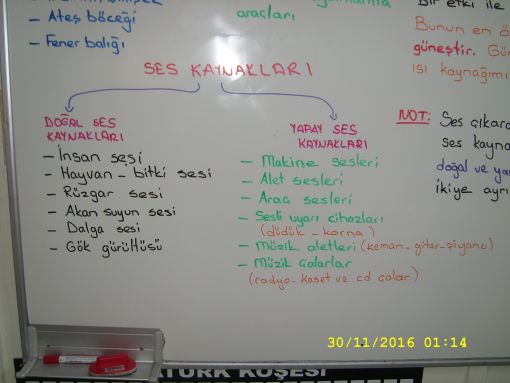 Ateş böceği
Fener balığı
araçları
Bir etki ile
Bunun en
güneştir.
ısı
SES KAYNAKLARI
DOĞAL SES
KAYNAKLARI
– İnsan sesi
– Hayvan – bitki sesi
– Rüzgar sesi
– Akan suyun sesi
– Dalga sesi
– Gök gürültüsü
YAPAY SES
KAYNAKLARI
– Makine sesleri
– Alet sesleri
– Araç sesleri
– Sesli uyarı cihazları
(düdük – korna)
– Müzik aletleri (keman – gitar – piyano)
– Müzik çalarlar
(radyo – kaset ve cd çalar)
NOT: Ses
ses
doğal ve
ikiye
30/11/2016 01:14
KÖŞESİ